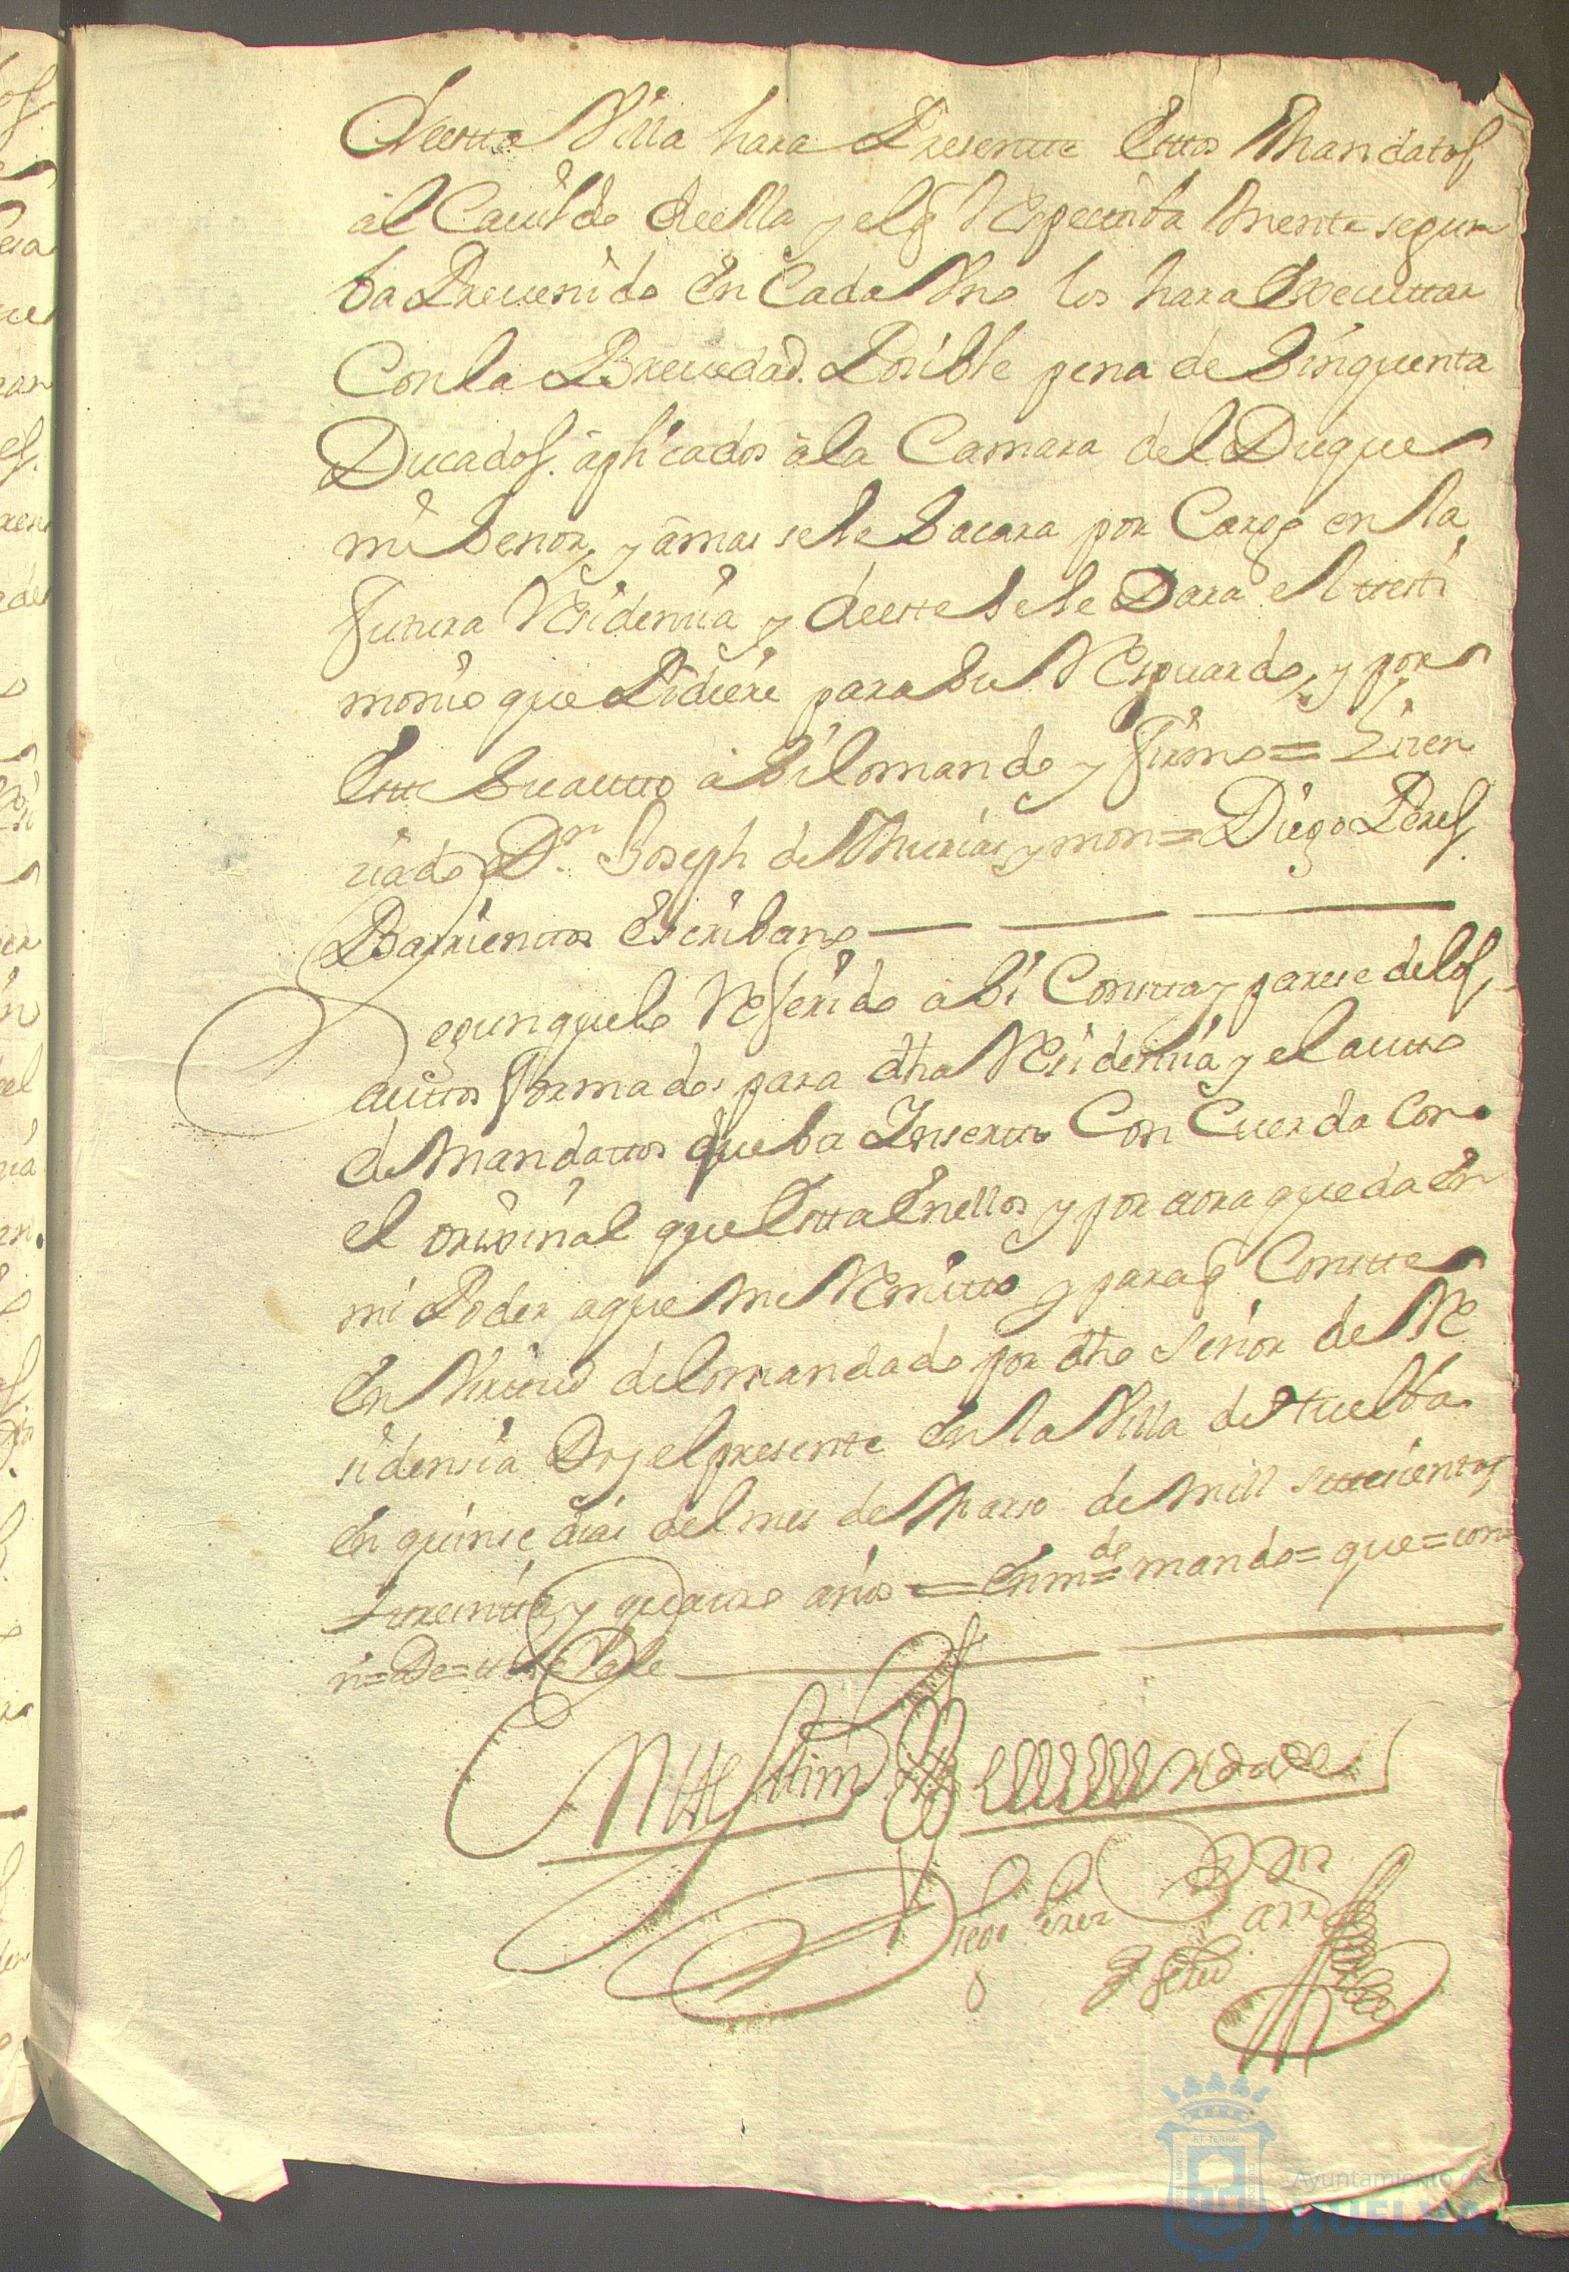 deesta Villa hara Presentte Esttos Mandatos
âl Cauildo deella y elq Respecttiba Mente segun
ba Preuenido En Cada Vno los hara Executtar
Conla Breuedad Posible pena de Sinquenta
Ducados. âplicados âla Camara del Duque
mi Senor, y âmas sele Sacara por Cargo en la
futura Residencia y deeste Sele Dara el ttesti
monio que Pidiere para Su Resguardo, y por
Este Su autto âsilo mando y firmo = Lizen
ciado Dn Joseph de Murias y mon = Diego Peres
Barrienttos Escribano
Segun quelo Referido âsi Constta y parese delos
auttos formados para dha Residencia y el autto
de Mandattos que ba Inserto Con Cuerda Con
el original que Estta Enellos y por aora queda En
mi Poder aque me Remitto y paraq Constte
En Virtud delo mandado por dho señor de Re
sidensia Doy el presente En la Villa de Huelba
En quinse dias del mes de Marso de mill settesientos
ttreintta y quattro años = Enmdo = de = mando = que = con =
n = De = Vale
Diego Perez
Barr